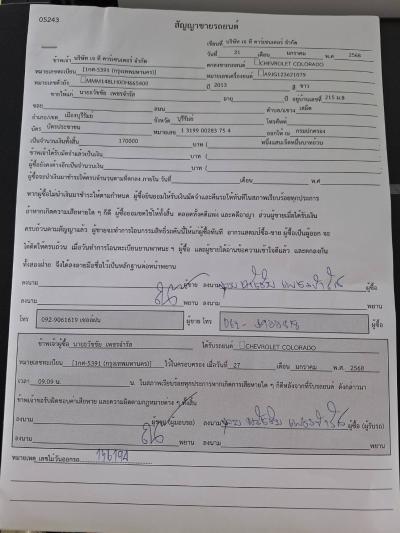 05243
สัญญาขายรถยนต์
เขียนที่ บริษัท เจ ที คาร์เซนเตอร์ จำกัด
วันที่ 21 เดือน มกราคม พ.ศ. 2568
ข้าพเจ้า บริษัท เจ ที คาร์เซนเตอร์ จำกัด ตกลงขายรถยนต์ CHEVROLET COLORADO
หมายเลขทะเบียน [1กศ-5391 (กรุงเทพมหานคร)] หมายเลขเครื่องยนต์
หมายเลขตัวถัง ปี 2013 สี ขาว
ขายให้แก่ นายธวัชชัย เพชรจำรัส อายุ ปี อยู่บ้านเลขที่ 215 ม.8
ซอย ถนน ตำบล/แขวง เสม็ด
อำเภอ/เขต เมืองบุรีรัมย์ จังหวัด บุรีรัมย์ โทรศัพท์
บัตร บัตรประชาชน หมายเลข 3 1199 00283 75 4 ออกให้ ณ กรมปกครอง
เป็นจำนวนเงินทั้งสิ้น 170000 บาท ( หนึ่งแสนเจ็ดหมื่นบาทถ้วน
ข้าพเจ้าได้รับมัดจำแล้วเป็นเงิน บาท (
ผู้ซื้อยังคงค้างอีกเป็นจำนวนเงิน บาท (
ผู้ซื้อจะนำเงินมาชำระให้ครบจำนวนตามที่ตกลง ภายใน วันที่ เดือน พ.ศ.
หากผู้ซื้อไม่นำเงินมาชำระตามกำหนด ผู้ซื้อยินยอมให้ริบเงินมัดจำและคืนรถให้ทันทีในสภาพเรียบร้อยทุกประการ
ถ้าหากเกิดความเสียหายใด ๆ ก็ดี ผู้ซื้อยอมชดใช้ให้ทั้งสิ้น ตลอดทั้งคดีแพ่ง และคดีอาญา ส่วนผู้ขายเมื่อได้รับเงิน
ครบถ้วนตามสัญญาแล้ว ผู้ขายจะทำการโอนกรรมสิทธิ์ระดับปีให้แก่ผู้ซื้อทันที อากรแสตมป์ซื้อ-ขาย ผู้ซื้อเป็นผู้ออก จะ
ได้คิดให้ครบถ้วน เมื่อวันทำการโอนทะเบียนยานพาหนะ ๆ ผู้ซื้อ และผู้ขายได้อ่านข้อความเข้าใจดีแล้ว และตกลงกัน
ทั้งสองฝ่าย จึงได้ลงลายมือชื่อไว้เป็นหลักฐานต่อหน้าพยาน
ลงนาม ผู้ขาย ลงนาม ผู้ซื้อ
ลงนาม พยาน ลงนาม พยาน
โทร 092-9061619 เซลล์ฝน ผู้ขาย โทร ผู้ซื้อ
ข้าพเจ้าผู้ซื้อ นายธวัชชัย เพชรจำรัส ได้รับรถยนต์ CHEVROLET COLORADO
หมายเลขทะเบียน [1กศ-5391 (กรุงเทพมหานคร)] ไว้ในครอบครอง เมื่อวันที่ 27 เดือน มกราคม พ.ศ. 2568
เวลา 09.09 น. น. ในสภาพเรียบร้อยทุกประการหากเกิดการเสียหายใด ๆ ก็ดีหลังจากที่รับรถยนต์ ดังกล่าวมา
ข้าพเจ้าขอรับผิดชอบค่าเสียหาย และความผิดตามกฎหมายต่าง ๆ ทั้งสิ้น
ลงนาม ผู้ซื้อ (ผู้มอบรถ) ลงนาม ผู้ซื้อ (ผู้รับรถ)
ลงนาม พยาน ลงนาม พยาน
หมายเหตุ เลขไมล์วันออกรถ